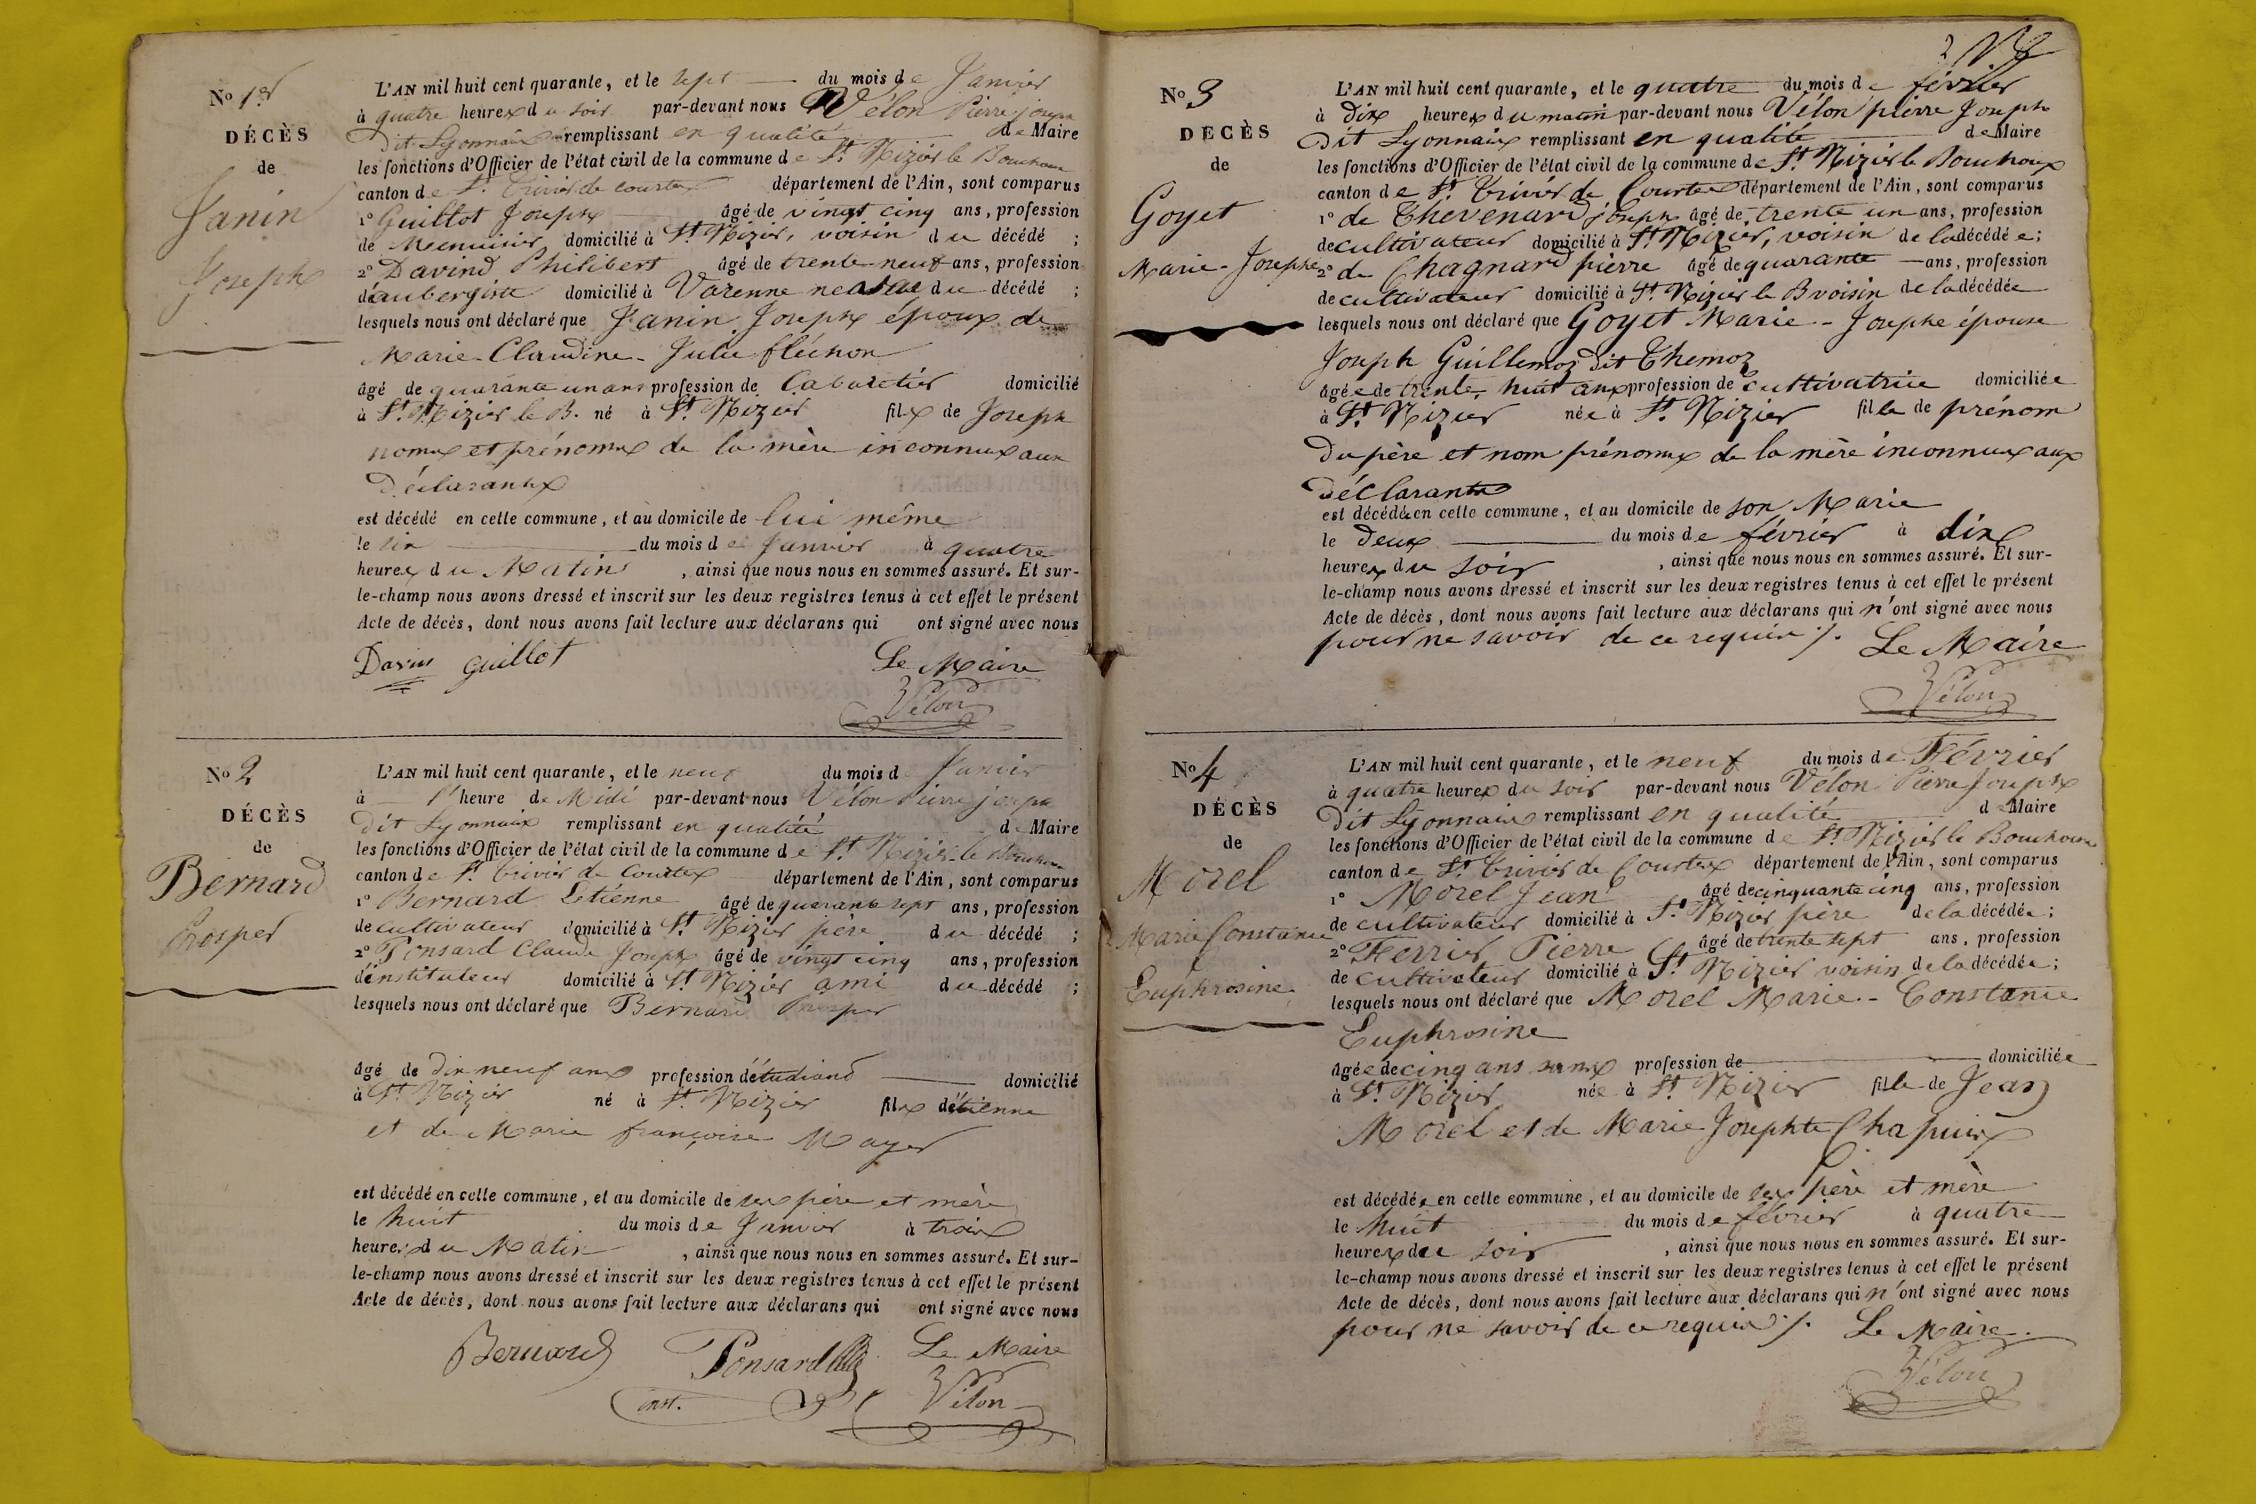 No 1er
DÉCÈS
de
Janin
Joseph
L'AN mil huit cent quarante, et le sept du mois de Janvier
à quatre heures du soir par-devant nous Vélon Pierre joseph
dit Lyonnais remplissant en qualité de Maire
les fonctions d'Officier de l'état civil de la commune de St Nizier le Bouchoux
canton de St. Trivier de courtes département de l'Ain, sont comparus
1º Guillot Joseph âgé de vingt cinq ans, profession
de Menuisier domicilié à St Nizier, voisin du décédé ;
2º Davind Philibert âgé de trente-neuf ans, profession
d'aubergiste domicilié à Varenne du décédé ;
lesquels nous ont déclaré que Janin Joseph époux de
Marie-Claudine-Julie fléchon
âgé de quarante un ans profession de Cabaretier domicilié
à St. Nizier le B. né à St. Nizier fils de Joseph
noms et prénoms de la mère inconnus aux
Déclarants
est décédé en cette commune, et au domicile de lui même
le six du mois de Janvier à quatre
heures du Matin , ainsi que nous nous en sommes assuré. Et sur-
le-champ nous avons dressé et inscrit sur les deux registres tenus à cet effet le présent
Acte de décès, dont nous avons fait lecture aux déclarans qui ont signé avec nous
Guillot Le Maire
Vélon
No 2
DÉCÈS
de
Bernard
Prosper
L'AN mil huit cent quarante, et le neuf du mois d Janvier
à l' heure de Midi par-devant nous Vélon Pierre joseph
dit Lyonnais remplissant en qualité de Maire
les fonctions d'Officier de l'état civil de la commune de St Nizier le Bouchoux
canton de St. Trivier de Courtes département de l'Ain, sont comparus
1º Bernard Etiénne âgé de quarante sept ans, profession
de cultivateur domicilié à St. Nizier père du décédé ;
2º Ponsard Claude Joseph âgé de vingt cinq ans, profession
d'instituteur domicilié à St. Nizier ami du décédé ;
lesquels nous ont déclaré que Bernard Prosper
âgé de dix neuf ans profession d'étudiand domicilié
à St. Nizier né à St. Nizier fils d'étienne
et de Marie françoise Mayer
est décédé en cette commune, et au domicile de ses père et mère
le huit du mois de Janvier à trois
heures du Matin , ainsi que nous nous en sommes assuré. Et sur-
le-champ nous avons dressé et inscrit sur les deux registres tenus à cet effet le présent
Acte de décès, dont nous avons fait lecture aux déclarans qui ont signé avec nous
Bernard Ponsard Le Maire
inst. Vélon
2
No 3
DÉCÈS
de
Goyet
Marie-Josephe
L'AN mil huit cent quarante, et le quatre du mois de février
à dix heures du matin par-devant nous Vélon pierre Joseph
dit Lyonnais remplissant en qualité de Maire
les fonctions d'Officier de l'état civil de la commune de St Nizier le Bouchoux
canton de St Trivier de Courtes département de l'Ain, sont comparus
1º de Thevenard joseph âgé de trente un ans, profession
de cultivateur domicilié à St Nizier, voisin de la décédée ;
2º de Chagnard pierre âgé de quarante ans, profession
de cultivateur domicilié à St Nizier le B voisin de la décédée
lesquels nous ont déclaré que Goyet Marie-Josephe épouse
Joseph Guillemoz dit Themoz
âgée de trente-huit ans profession de cultivatrice domiciliée
à St. Nizier née à St. Nizier fille de prénom
du père et nom prénoms de la mère inconnus aux
déclarants
est décédée en cette commune, et au domicile de son Marie
le deux du mois de février à dix
heures du soir , ainsi que nous nous en sommes assuré. Et sur-
le-champ nous avons dressé et inscrit sur les deux registres tenus à cet effet le présent
Acte de décès, dont nous avons fait lecture aux déclarans qui n'ont signé avec nous
pour ne savoir de ce requis /. Le Maire
Vélon
No 4
DÉCÈS
de
Morel
Marie Constance
Euphrosine
L'AN mil huit cent quarante, et le neuf du mois de Février
à quatre heures du soir par-devant nous Vélon Pierre Joseph
dit Lyonnais remplissant en qualité de Maire
les fonctions d'Officier de l'état civil de la commune de St Nizier le Bouchoux
canton de St Trivier de Courtes département de l'Ain, sont comparus
1º Morel Jean âgé de cinquante cinq ans, profession
de cultivateur domicilié à St Nizier père de la décédée ;
2º Ferrier Pierre âgé de trente sept ans, profession
de cultivateur domicilié à St Nizier voisin de la décédée ;
lesquels nous ont déclaré que Morel Marie-Constance
Euphrosine
âgée de cinq ans profession de domiciliée
à St. Nizier née à St. Nizier fille de Jean
Morel et de Marie Josephte Chapuis
est décédée en cette commune, et au domicile de ses père et mère
le huit du mois de février à quatre
heures du soir , ainsi que nous nous en sommes assuré. Et sur-
le-champ nous avons dressé et inscrit sur les deux registres tenus à cet effet le présent
Acte de décès, dont nous avons fait lecture aux déclarans qui n'ont signé avec nous
pour ne savoir de ce requis /. Le Maire.
Vélon